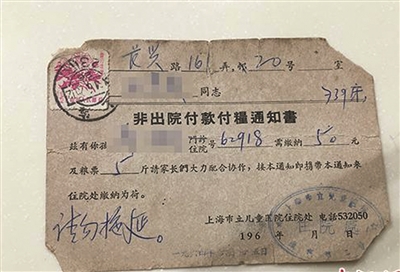 路 161 弄 20号 室
同志 339床
非出院付款付糧通知書
茲有你 門診 住院 号 62918 需缴纳 50 元
及粮票 5 斤請家長們大力配合协作,接本通知即携带本通知来
住院处缴纳为荷。
请勿拖延。
上海市立儿童医院住院处 电話532050
196 年 月 日